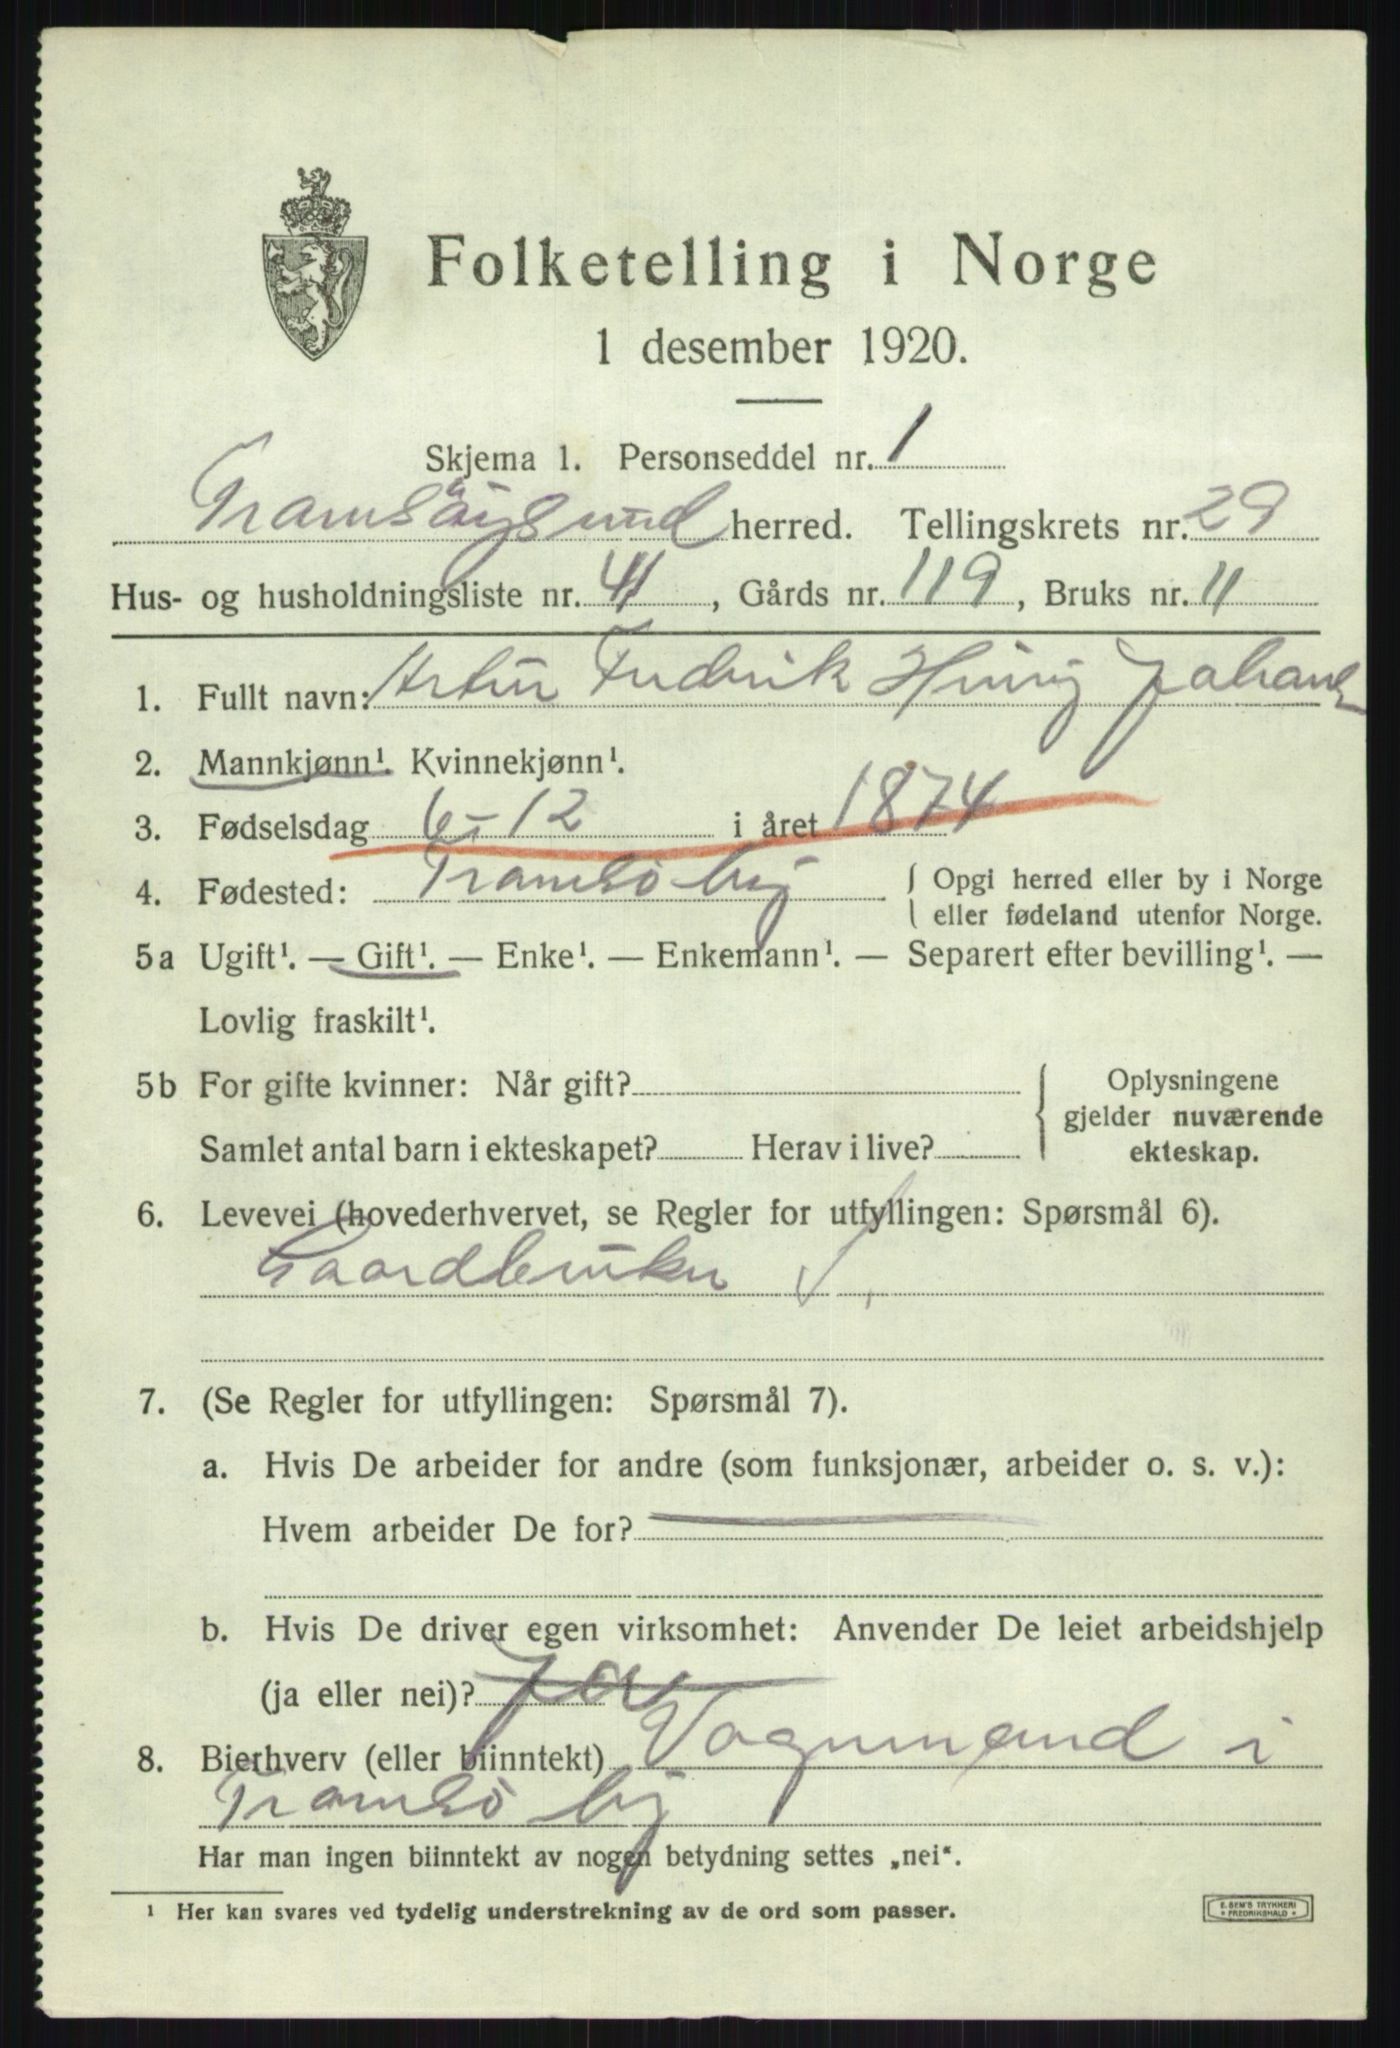 Folketelling i Norge
1 desember 1920.
Skjema 1. Personseddel nr. 1
Tromsöysund herred. Tellingskrets nr. 29
Hus- og husholdningsliste nr. 41, Gårds nr. 119, Bruks nr. 11
1. Fullt navn: Artur Fredrik Johans
2. Mannkjønn¹. Kvinnekjønn¹.
3. Fødselsdag 6-12 i året 1874
4. Fødested: Tromsö by { Opgi herred eller by i Norge
eller fødeland utenfor Norge.
5a Ugift¹. — Gift¹. — Enke¹. — Enkemann¹. — Separert efter bevilling¹. —
Lovlig fraskilt¹.
5b For gifte kvinner: Når gift? { Oplysningene
gjelder nuværende
Samlet antal barn i ekteskapet? Herav i live? ekteskap.
6. Levevei (hovederhvervet, se Regler for utfyllingen: Spørsmål 6).
Gaardbruker
7. (Se Regler for utfyllingen: Spørsmål 7).
a. Hvis De arbeider for andre (som funksjonær, arbeider o. s. v.):
Hvem arbeider De for?
b. Hvis De driver egen virksomhet: Anvender De leiet arbeidshjelp
(ja eller nei)? Ja
8. Bierhverv (eller biinntekt) Vognmand i
Tromsö by
Har man ingen biinntekt av nogen betydning settes „nei“.
¹ Her kan svares ved tydelig understrekning av de ord som passer.
E. SEM'S TRYKKERI
* FREDRIKSHALD *